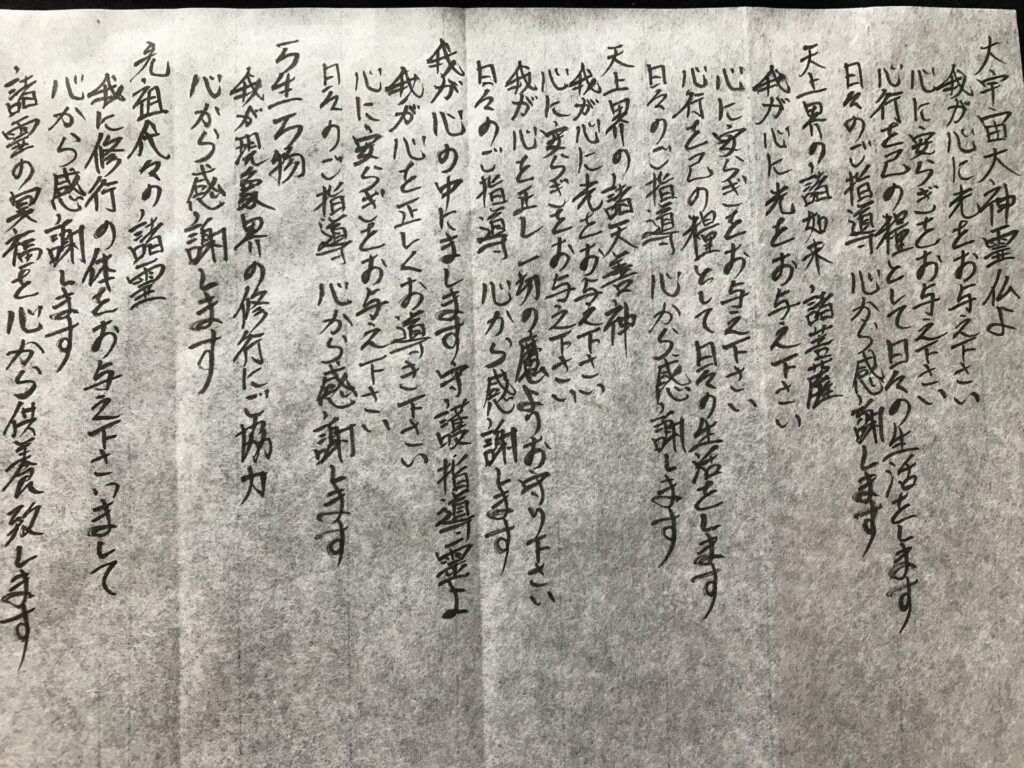 大宇宙大神霊仏よ
我が心に光をお与え下さい
心に安らぎをお与え下さい
心行を己の糧として日々の生活をします
日々のご指導 心から感謝します
天上界の諸如来 諸菩薩
我が心に光をお与え下さい
心に安らぎをお与え下さい
心行を己の糧として日々の生活をします
日々のご指導 心から感謝します
天上界の諸天善神
我が心に光をお与え下さい
心に安らぎをお与え下さい
我が心を正し 一切の魔よりお守り下さい
日々のご指導 心から感謝します
我が心の中にまします守護指導霊よ
我が心を正しくお導き下さい
心に安らぎをお与え下さい
日々のご指導 心から感謝します
万生万物
我が現象界の修行にご協力
心から感謝します
先祖代々の諸霊
我に修行の体をお与え下さいまして
心から感謝します
諸霊の冥福を心から供養致します